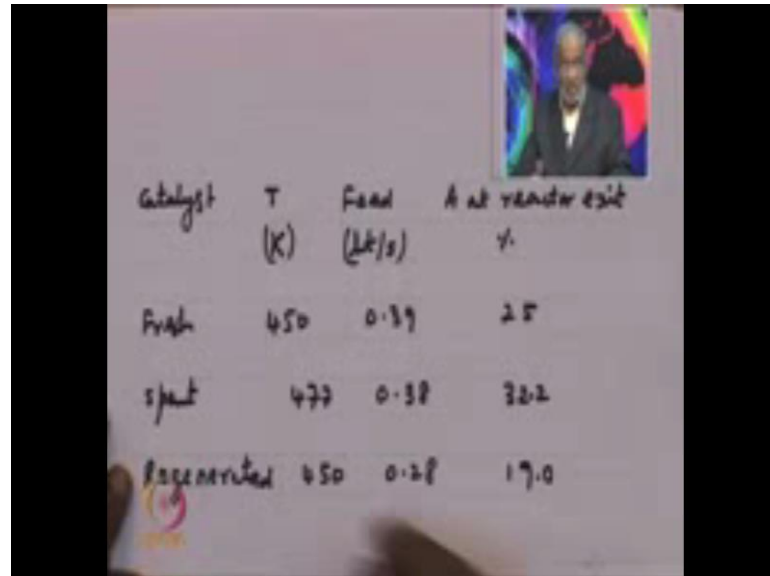 Catalyst T Feed A at reactor exit
(K) (lit/s) %
Fresh 450 0.39 25
spent 477 0.38 32.2
Regenerated 450 0.28 19.0